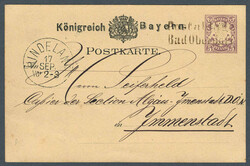 Königreich Bayern
POSTKARTE.
HINDELANG
17
SEP.
2-3
Bad Ob
Herrn Seiferheld
Cassier der Section Algäu-Immenstadt D.Ö.A.
in
Immenstadt